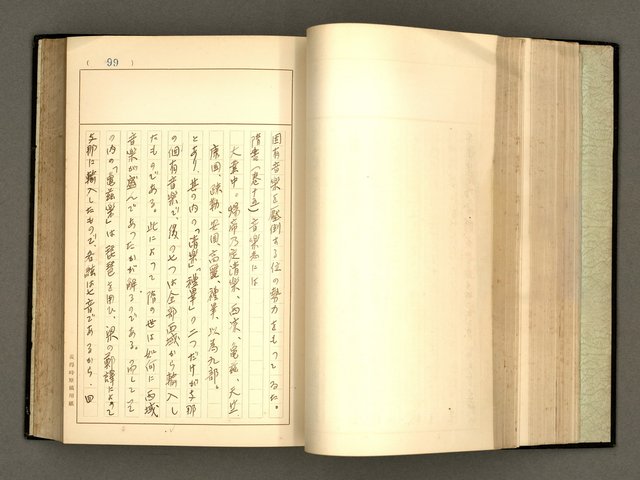 ( 99 )
固有音楽を壓倒する位の勢力をもってゐた。
隋書（巻十五）音楽志には
大業中。煬帝乃定清樂、西凉、亀茲、天竺
康国、疎勒、安国、高麗、禮畢、以為九部。
とあり、其の内の「清樂」「禮畢」の二つだけが支那
の固有音楽で、後の七つは全部西域から輸入し
たものである。此によって隋の世は如何に西域
音楽が盛んであったかが解るのである。而して
の内の「亀茲樂」は琵琶を用ひ、梁の鄭譯によって
支那に輸入したもので、各絃は七音であるから、四
長得時原稿用紙